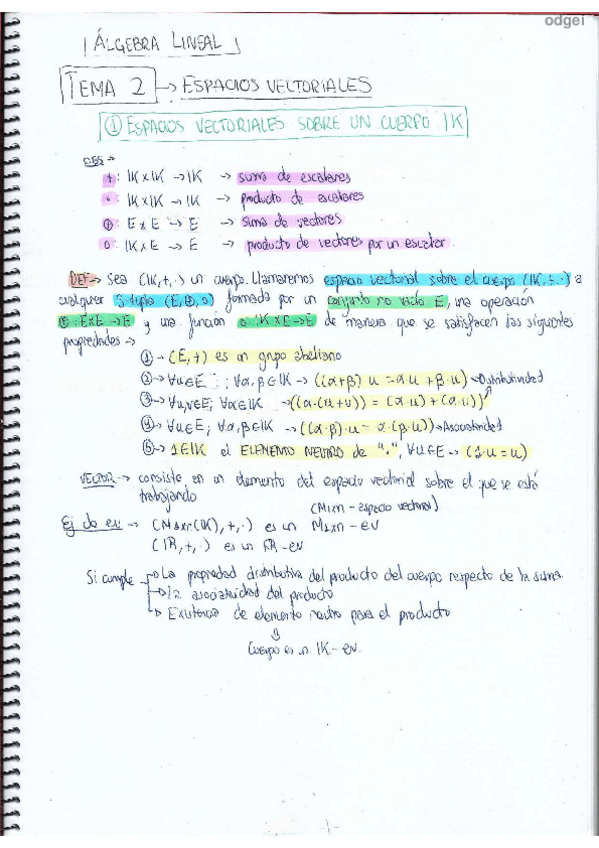 odgei
ÁLGEBRA LINEAL
TEMA 2 → ESPACIOS VECTORIALES
① ESPACIOS VECTORIALES SOBRE UN CUERPO IK
+ : IK x IK → IK → suma de escalares
· : IK x IK → IK → producto de escalares
⊕ : E x E → E → suma de vectores
o : IK x E → E → producto de vectores por un escalar
DEF → Sea (IK,+,·) un cuerpo. Llamaremos espacio vectorial sobre el cuerpo (IK,+,·) a
cualquier 3-tupla (E,⊕,o) formada por un conjunto no vacío E, una operación
⊕ : E x E → E y una función o : IK x E → E de manera que se satisfacen las siguientes
propiedades →
① → (E,+) es un grupo abeliano
② → ∀u∈E ; ∀α,β∈IK → ((α+β)·u = α·u + β·u) → Distributividad
③ → ∀u,v∈E; ∀α∈IK → ((α·(u+v)) = (α·u)+(α·v))
④ → ∀u∈E; ∀α,β∈IK → ((α·β)·u = α·(β·u)) → Asociatividad
⑤ → 1∈IK el ELEMENTO NEUTRO de "·", ∀u∈E → (1·u = u)
VECTOR → consiste en un elemento del espacio vectorial sobre el que se está
trabajando
(Mixn - espacio vectorial)
Ej de ev: → (Mixn(IK),+,·) es un Mixn - ev
(IR,+,·) es un IR - ev
Si cumple → La propiedad distributiva del producto del cuerpo respecto de la suma
→ La asociatividad del producto
→ Existencia de elemento neutro para el producto
Cuerpo es un IK - ev.
-1-